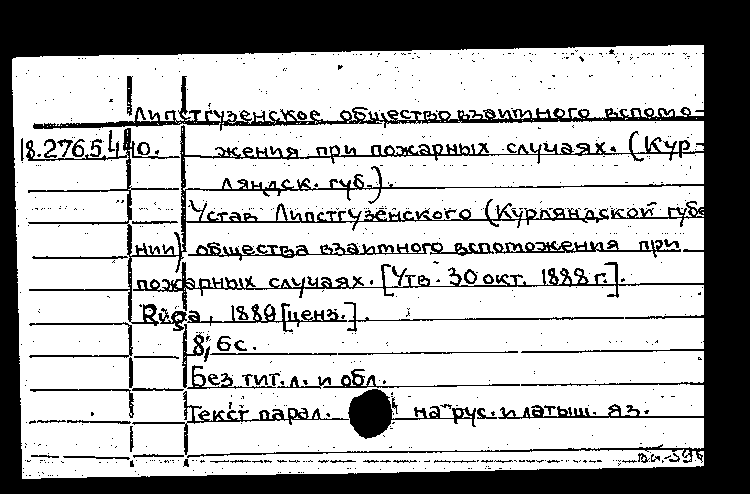 Липстгузенское общество взаимного вспомо-
18.276.5.440. жения при пожарных случаях. (Кур-
ляндск. губ.).
Устав Липстгузенского (Курляндской губе
нии) общества взаимного вспоможения при
пожарных случаях. [Утв. 30 окт. 1888 г.].
Rīga, 1889 [ценз.].
8, 6 с.
Без тит. л. и обл.
Текст парал. на рус. и латыш. яз.